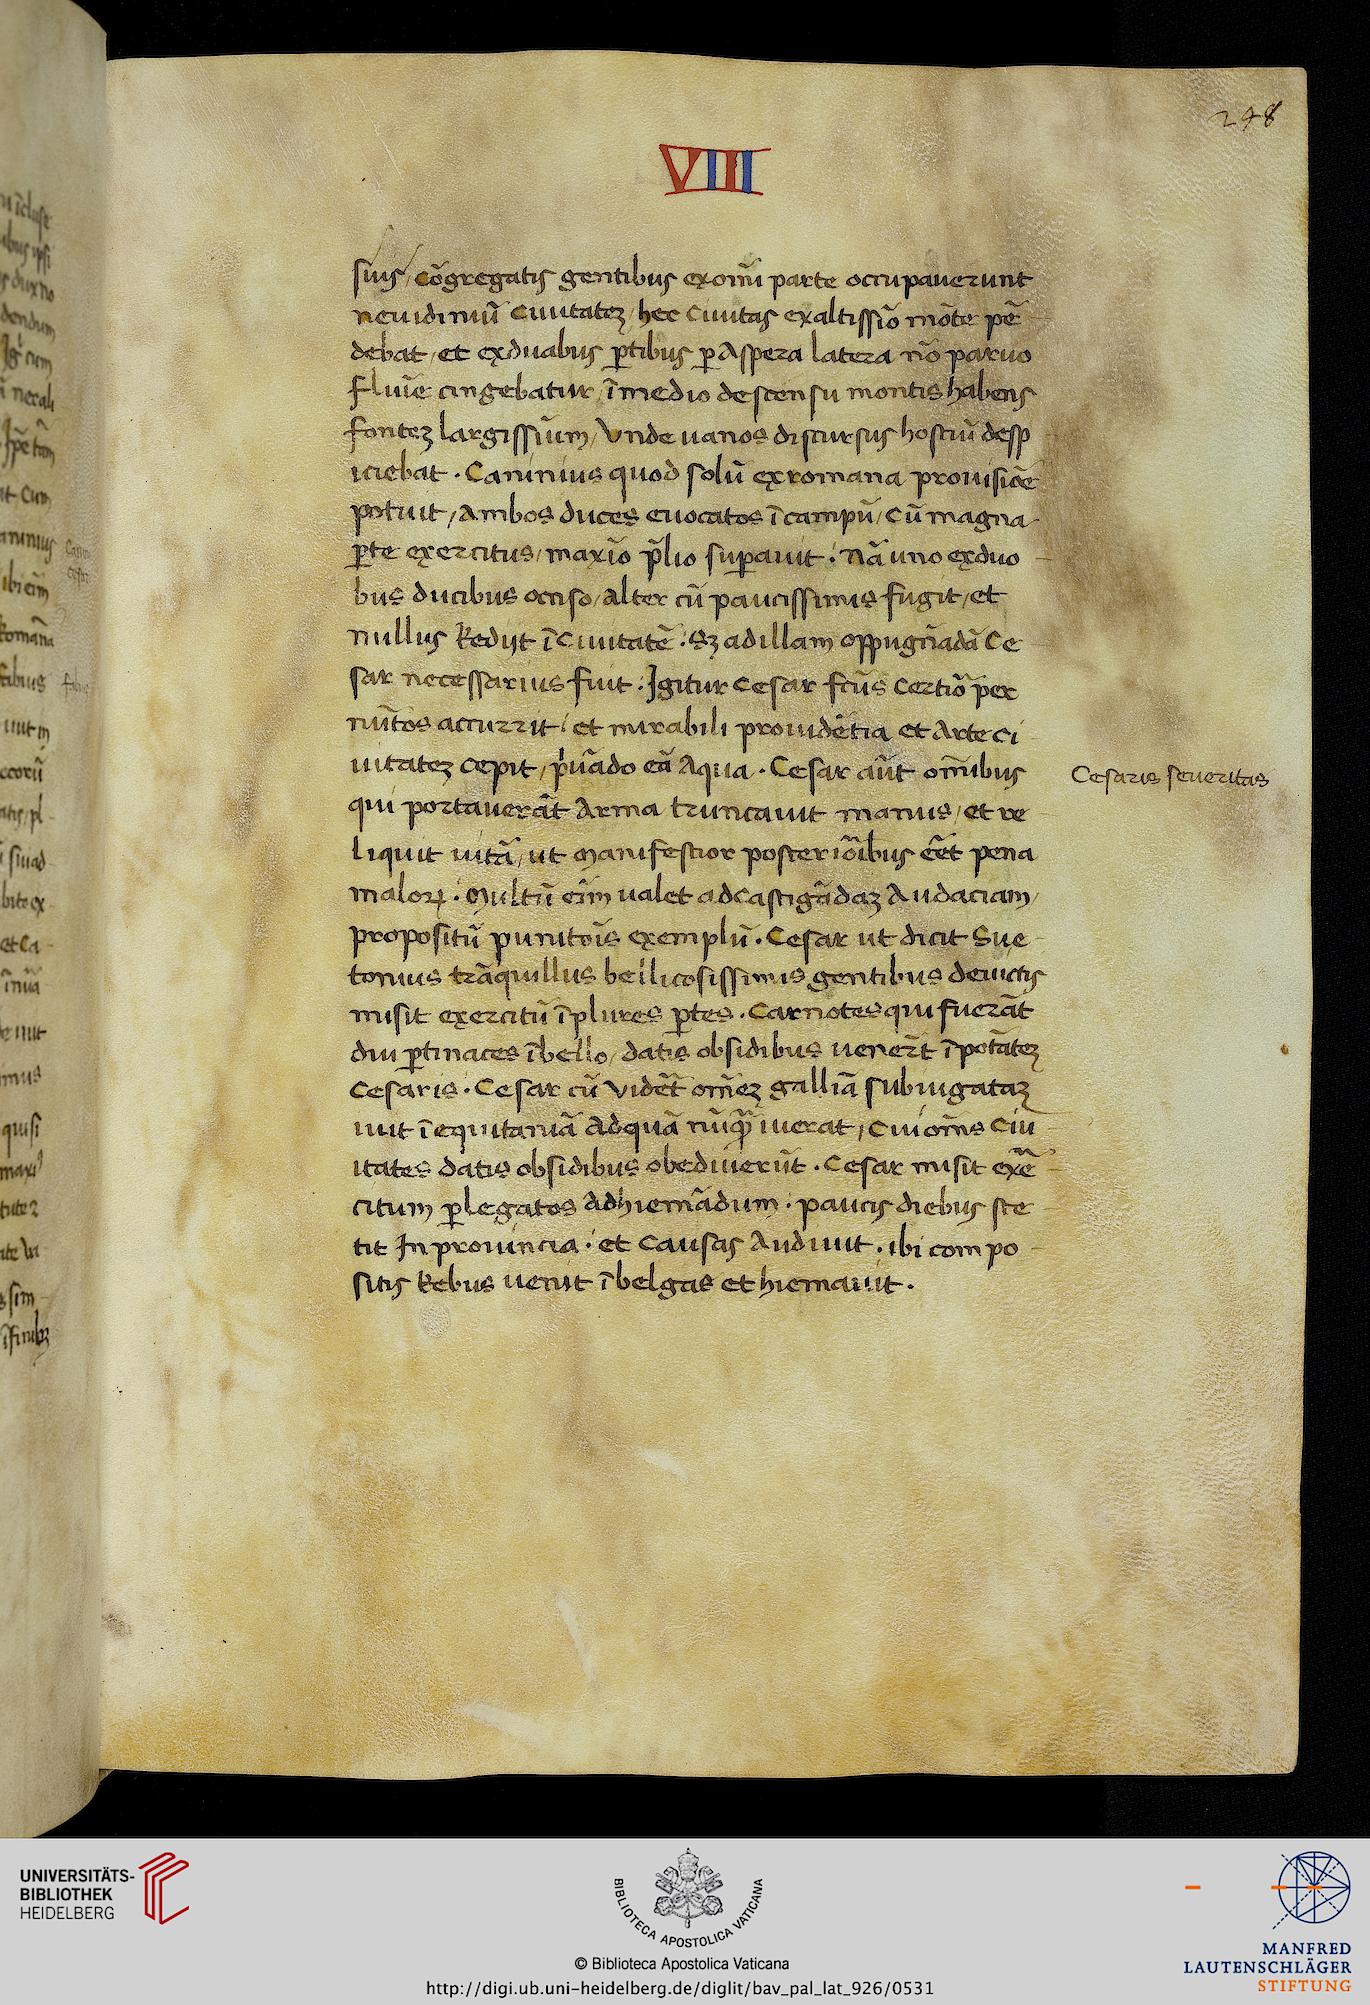 248
VIIII
sius, cōgregatis gentibus ex om̄i parte occupauerunt
neuidunū Ciuitatez, hec Ciuitas ex altissīo mōte pē
debat, et ex duabus ꝑtibus ꝑ Aspera latera nō paruo
fluīe cingebatur, ī medio descensu montis habens
fontez largissiūm, Vnde uanos discursus hostiū desp
iciebat. Caninius quod solū ex romana prouisiōe
potuit, Ambos duces euocatos ī campū, Cū magna
ꝑte exercitus, maxīo p̄lio suꝑauit. Nā uno ex duo
bus ducibus occiso, alter cū paucissimis fugit, et
nullus Redijt ī Ciuitatē. Sꝫ ad illam oppugnādā Ce
sar necessarius fuit. Igitur Cesar fc̄us Certiōr per
nūtos accurrit, et mirabili prouidētia et Arte ci
uitatez cepit, p̄uādo eā Aqua. Cesar aūt om̄ibus
qui portauerāt Arma truncauit manus, et re
liquit uitā, ut Manifestior posterioībus eēt pena
maloꝝ. Multū eīm ualet ad Castigādaz Audaciam,
propositū punitōis exemplū. Cesar ut dicit Sue
tonius trāquillus bellicosissimis gentibus deuictis
misit exercitū ī plures ꝑtes. Carnotes qui fuerāt
diu ꝑtinaces ī bello, datis obsidibus uenert̄ ī potātez
Cesaris. Cesar cū Vidēt om̄ez galliā subiugataz
iuit ī equitaniā Ad quā nūq̄ iuerat, Cui om̄s Ciu
itates datis obsidibus obediuerūt. Cesar misit exē
citum ꝑ legatos ad hiemādum. paucis diebus ste
tit In prouincia. et Causas Audiuit. ibi compo
sitis Rebus uenit ī belgas et hiemauit.
Cesaris seueritas
UNIVERSITÄTS-
BIBLIOTHEK
HEIDELBERG
BIBLIOTECA APOSTOLICA VATICANA
© Biblioteca Apostolica Vaticana
http://digi.ub.uni-heidelberg.de/diglit/bav_pal_lat_926/0531
MANFRED
LAUTENSCHLÄGER
STIFTUNG